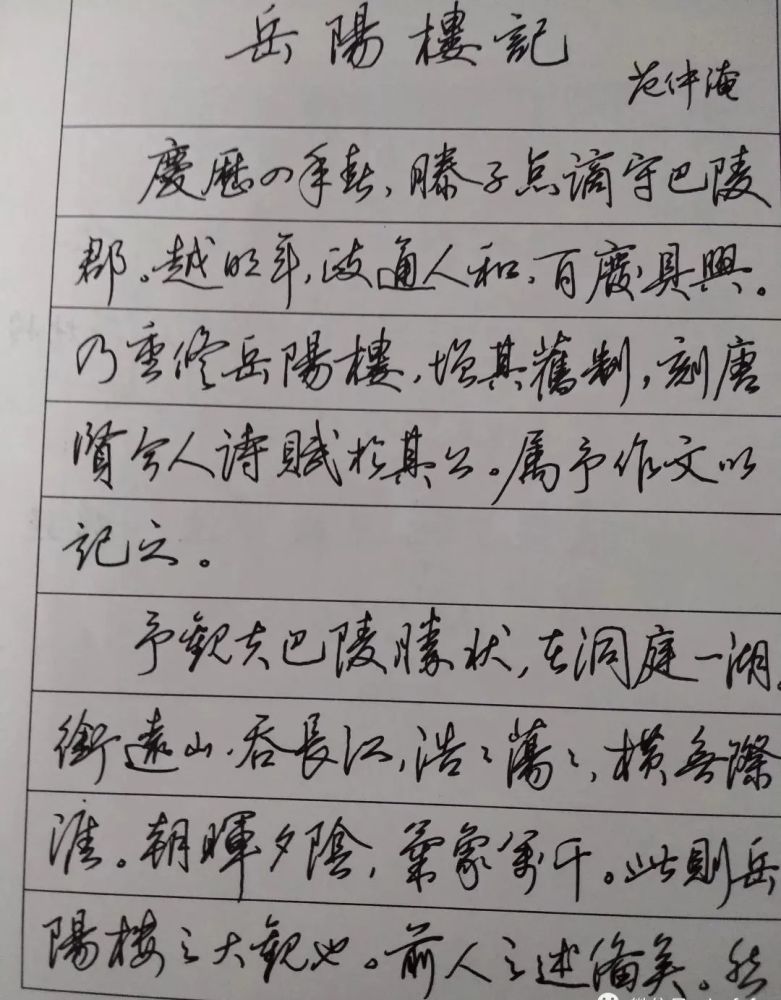 岳陽樓記
范仲淹
慶歷四年春，滕子京謫守巴陵
郡。越明年，政通人和，百廢具興。
乃重修岳陽樓，增其舊制，刻唐
賢今人詩賦於其上。屬予作文以
記之。
予觀夫巴陵勝狀，在洞庭一湖。
銜遠山，吞長江，浩〻蕩〻，橫無際
涯。朝暉夕陰，氣象萬千。此則岳
陽樓之大觀也。前人之述備矣。然